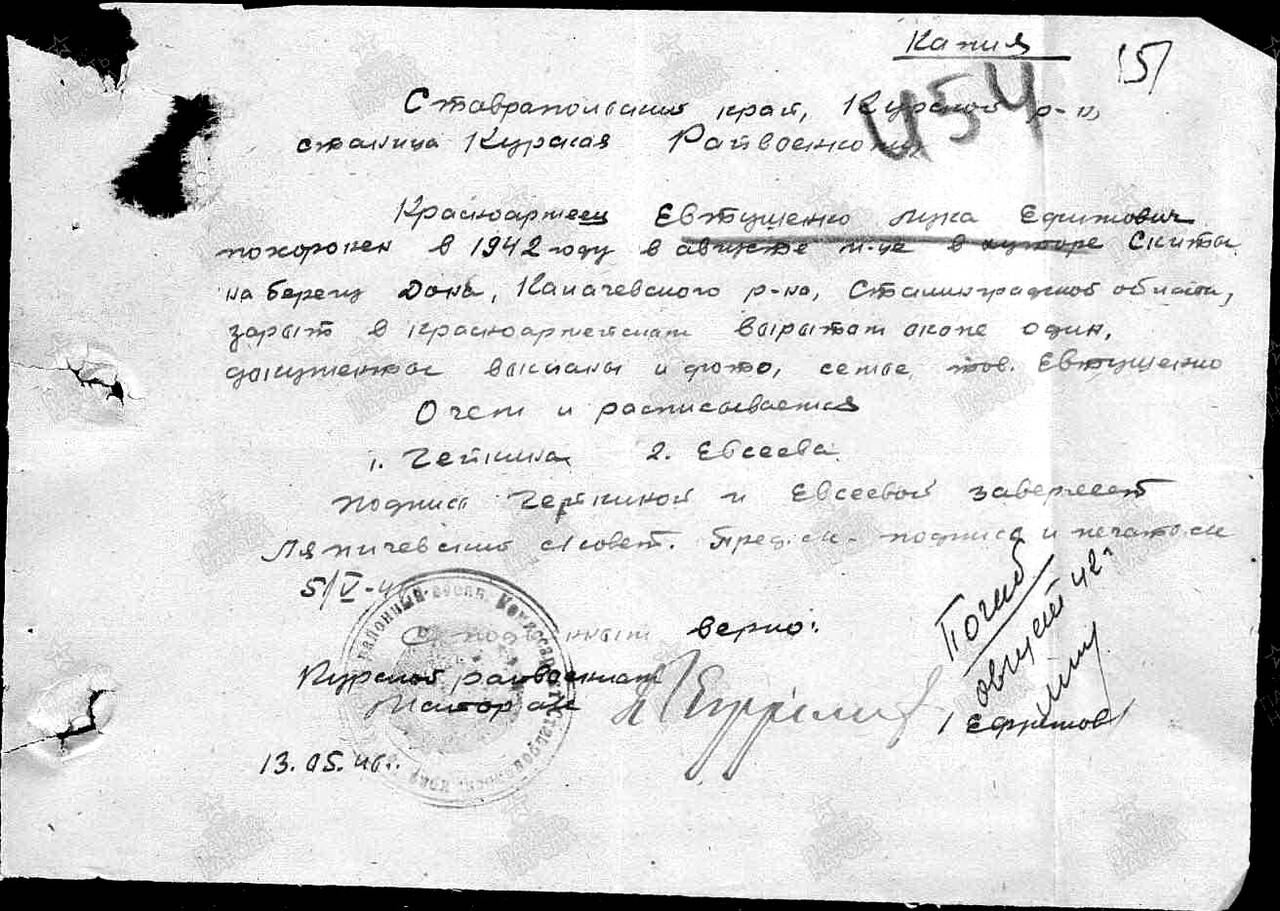 Капия
151
454
Ставропольский край, Курской р-н,
станица Курская Райвоенкому
Красноармеец Евтушенко Лука Ефимович
похоронен в 1942 году в августе м-це в хуторе Скиты
на берегу Дона, Калачевского р-на, Сталинградской области,
зарыт в красноармейском вырытом окопе один,
документы высланы и фото, семье тов. Евтушенко
О чем и расписывается
1. Чейкина 2. Евсеева
Подписи Чейкиной и Евсеевой заверяет
Ляпичевский с/совет. Пред. с/с - подпись и печать с/с
5/V-46
С подлинным верно:
Курской райвоенком
Майор а/с
/Ефимов/
13.05.46г.
Погиб
август 42г
районный военн. Комиссариат